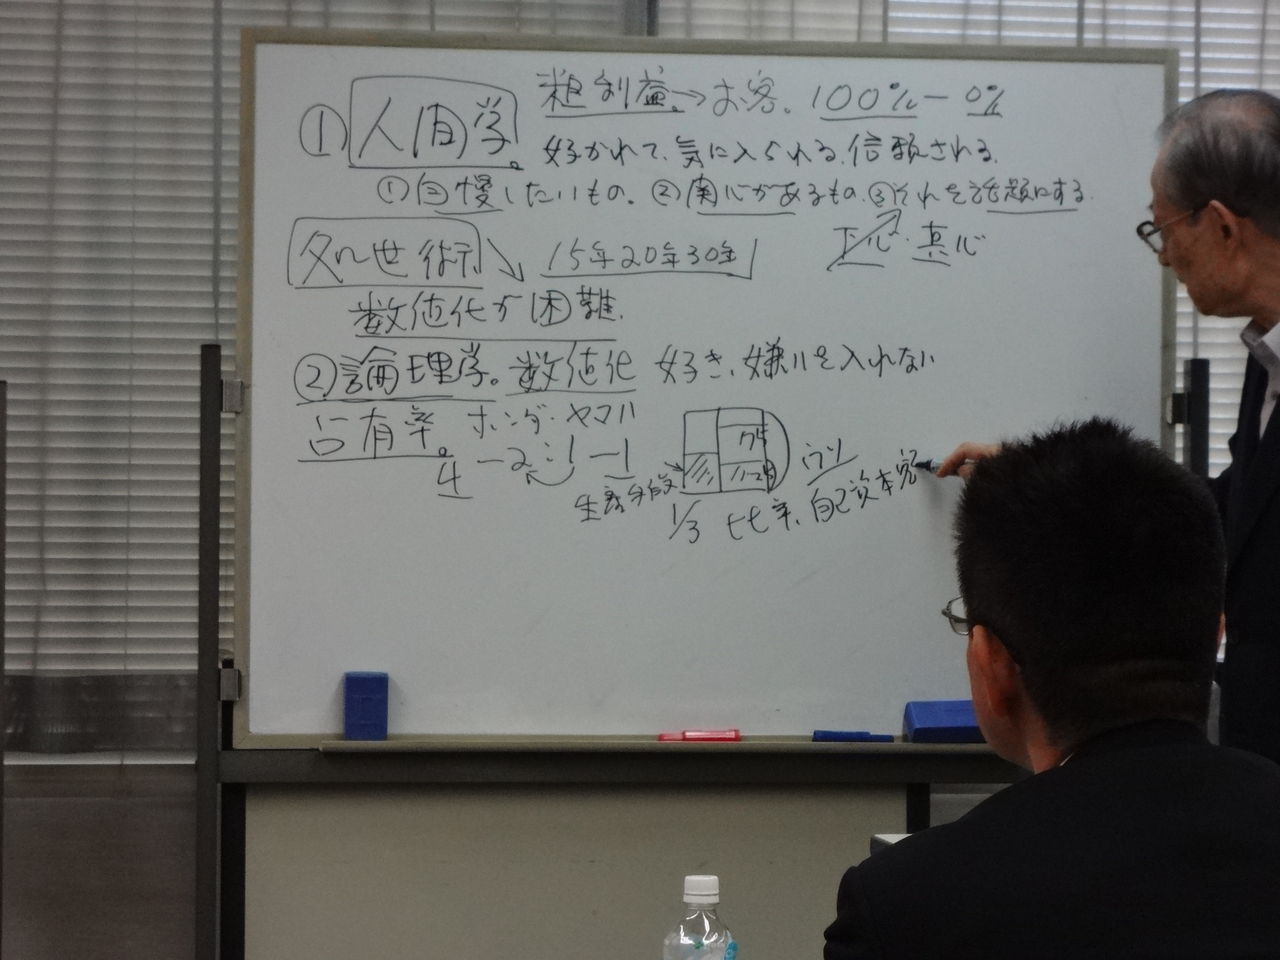 ①人間学。 粗利益。→お客。100%-0%
好かれて、気に入られる、信頼される。
①自慢したいもの。②関心があるもの。③それを話題にする。
下心・真心
処世術 15年20年30年
数値化が困難。
②論理学。数値化 好き、嫌いを入れない
占有率。 ホンダ・ヤマハ
4 -2 : 1 -1
1/3 比率、自己資本